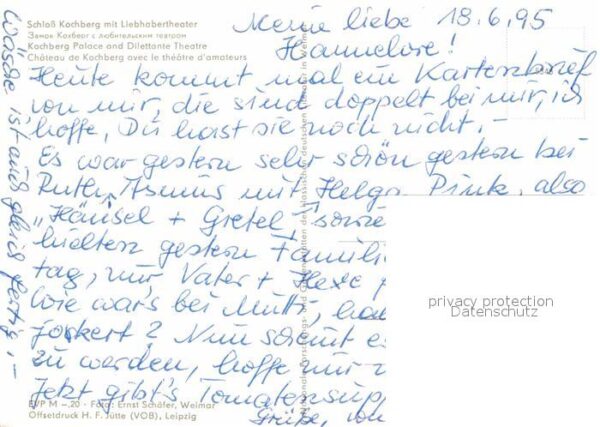 Schloß Kochberg mit Liebhabertheater
Замок Кохберг с любительским театром
Kochberg Palace and Dilettante Theatre
Château de Kochberg avec le théâtre d'amateurs
Meine liebe 18.6.95
Hannelore!
Heute kommt mal ein Kartenbrief
von mir, die sind doppelt bei mir, ich
hoffe, Du hast sie noch nicht.-
Es war gestern sehr schön gestern bei
Ruth, Asmus mit Helga Pink, also
"Hänsel + Gretel", sowie
hielten gestern Famili
tag, nur Vater + Hexe
Wie war's bei Mutti,
Nun scheint es
zu werden, hoffe nur
Jetzt gibt's Tomatensup
Grüße, von
Wäsche ist auch gleich fertig.-
EVP M -,20 · Foto: Ernst Schäfer, Weimar
Offsetdruck H. F. Jütte (VOB), Leipzig
privacy protection
Datenschutz